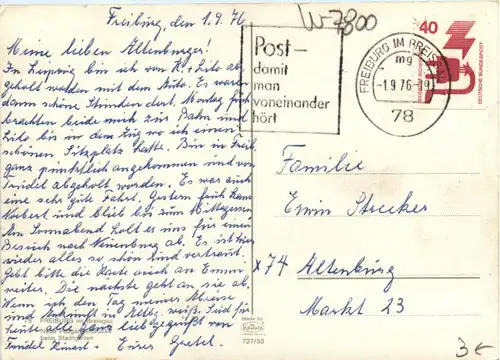 Freiburg, den 1.9.76
Meine lieben Altenburger!
In Leipzig bin ich von K. + Lilo ab
geholt worden mit dem Auto. Es waren
dann schöne Stunden dort. Montag früh
brachten beide mich zur Bahn und
Lilo bis in den Zug wo ich einen
schönen Sitzplatz hatte. Bin in Freib.
ganz pünktlich angekommen und von
Trudel abgeholt worden. Es war auch
eine sehr gute Fahrt. Gestern früh kam
Norbert und blieb bis zum Mittagessen.
Am Sonnabend holt er uns für einen
Besuch nach Neuenburg ab. Es ist hier
wieder alles so schön und vertraut.
Gebt bitte die Karte auch an
weiter. Die nächste geht an sie ab.
Wenn ich den Tag meiner Abreise
und Ankunft in weiß. Seid für
heute alle ganz lieb gegrüßt von
Trudel Eurer Gretel.
FREIBURG im Breisgau
beim Stadtgarten
W-7800
Post-
damit
man
voneinander
hört
FREIBURG IM BREISGAU
mg
-1.9.76-19
78
40
DEUTSCHE BUNDESPOST
Familie
Erwin Strecker
x 74 Altenburg
Markt 23
Made by
727/53
3€